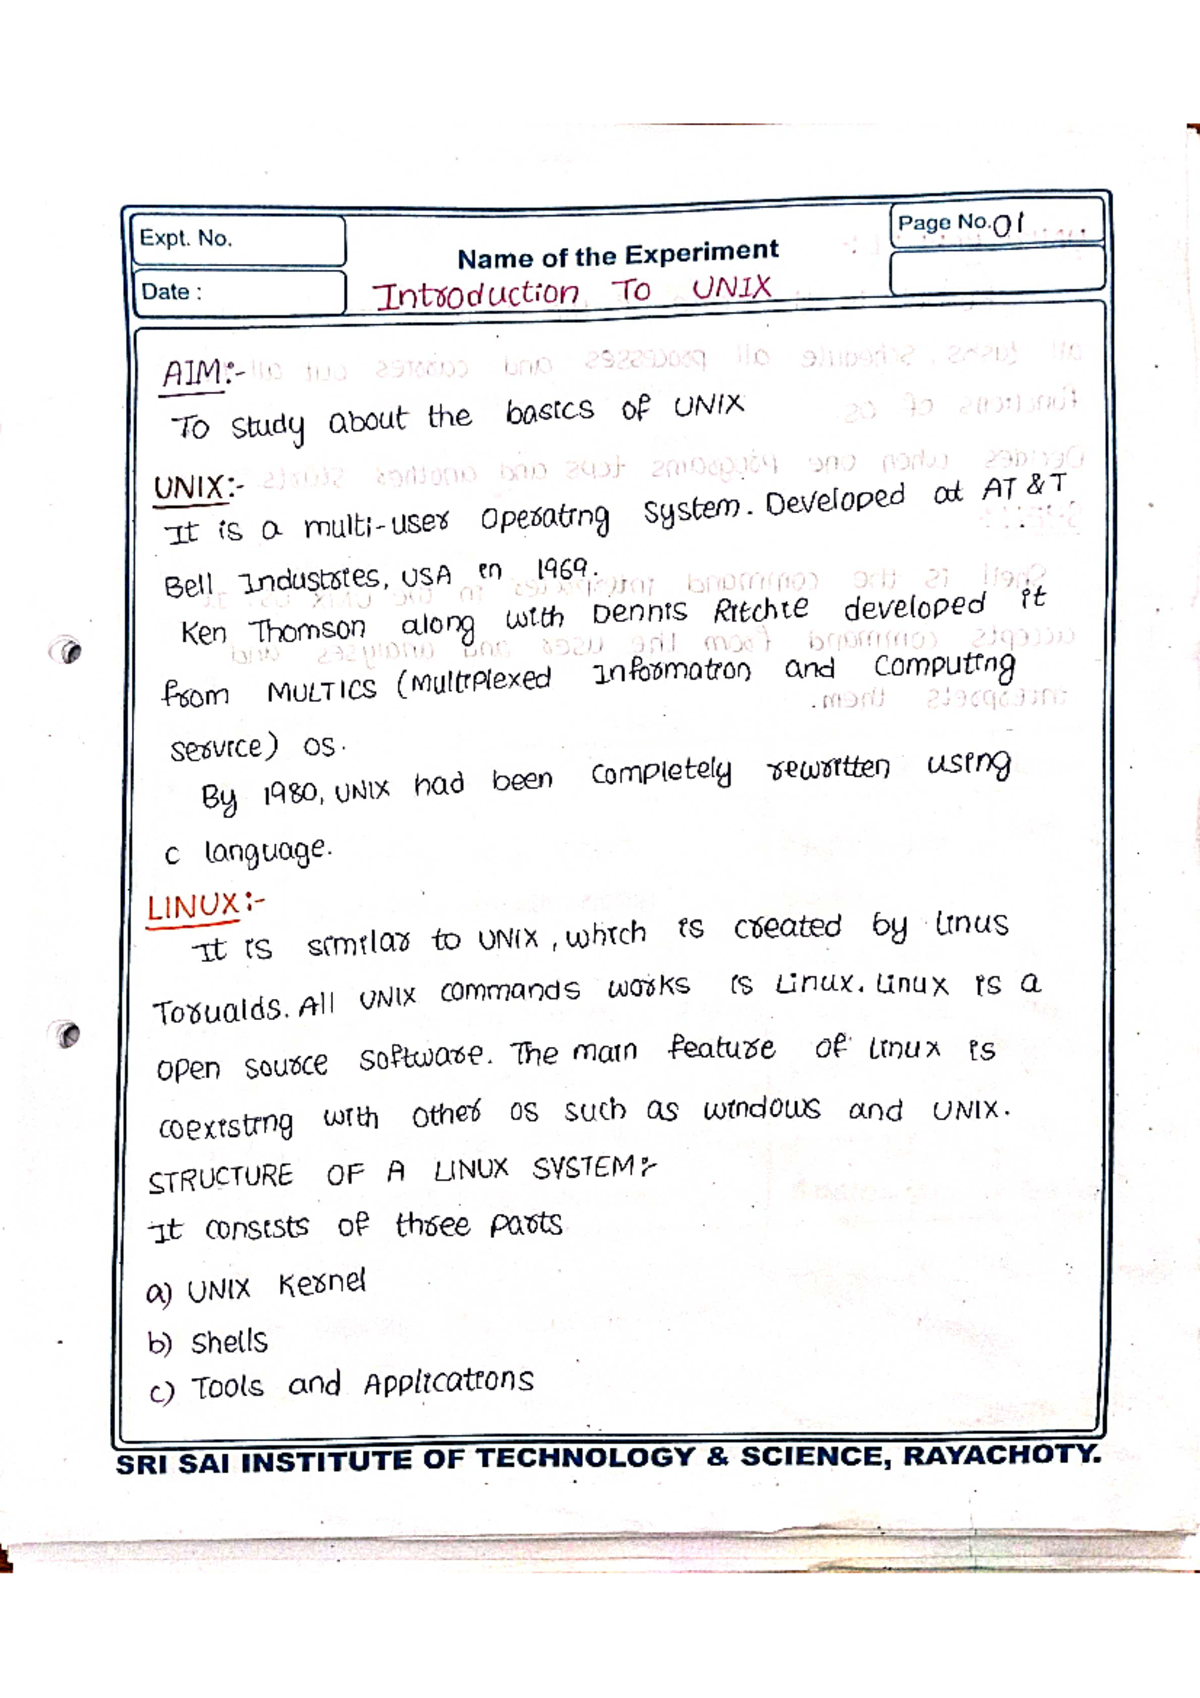 Expt. No.
Page No. 01
Name of the Experiment
Date :
Introduction To UNIX
AIM:-
To study about the basics of UNIX
UNIX:-
It is a multi-user operating system. Developed at AT & T
Bell Industries, USA in 1969.
Ken Thomson along with Dennis Ritchie developed it
from MULTICS (Multiplexed Information and Computing
service) os.
By 1980, UNIX had been completely rewritten using
c language.
LINUX:-
It is similar to UNIX, which is created by Linus
Torualds. All UNIX commands works is Linux. Linux is a
open source software. The main feature of Linux is
coexisting with other os such as windows and UNIX.
STRUCTURE OF A LINUX SYSTEM:-
It consists of three parts
a) UNIX Kernel
b) Shells
c) Tools and Applications
SRI SAI INSTITUTE OF TECHNOLOGY & SCIENCE, RAYACHOTY.